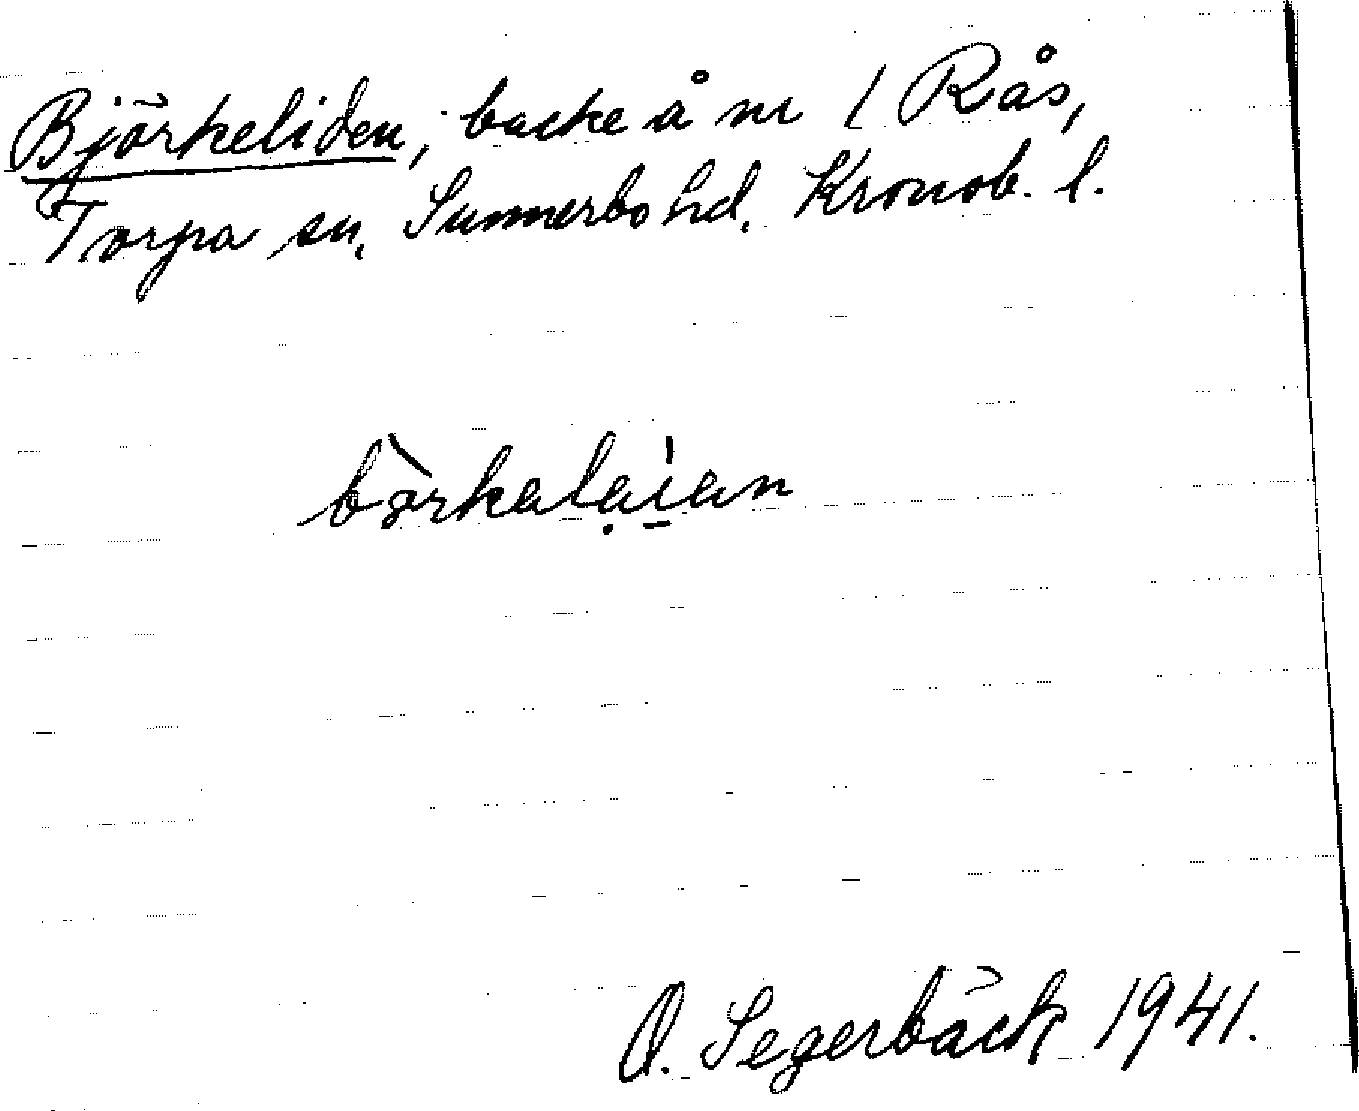 Björkeliden, backe å nr 1 Rås,
Torpa sn, Sunnerbo hd, Kronob. l.
bòrkalại̱an
O. Segerbäck 1941.